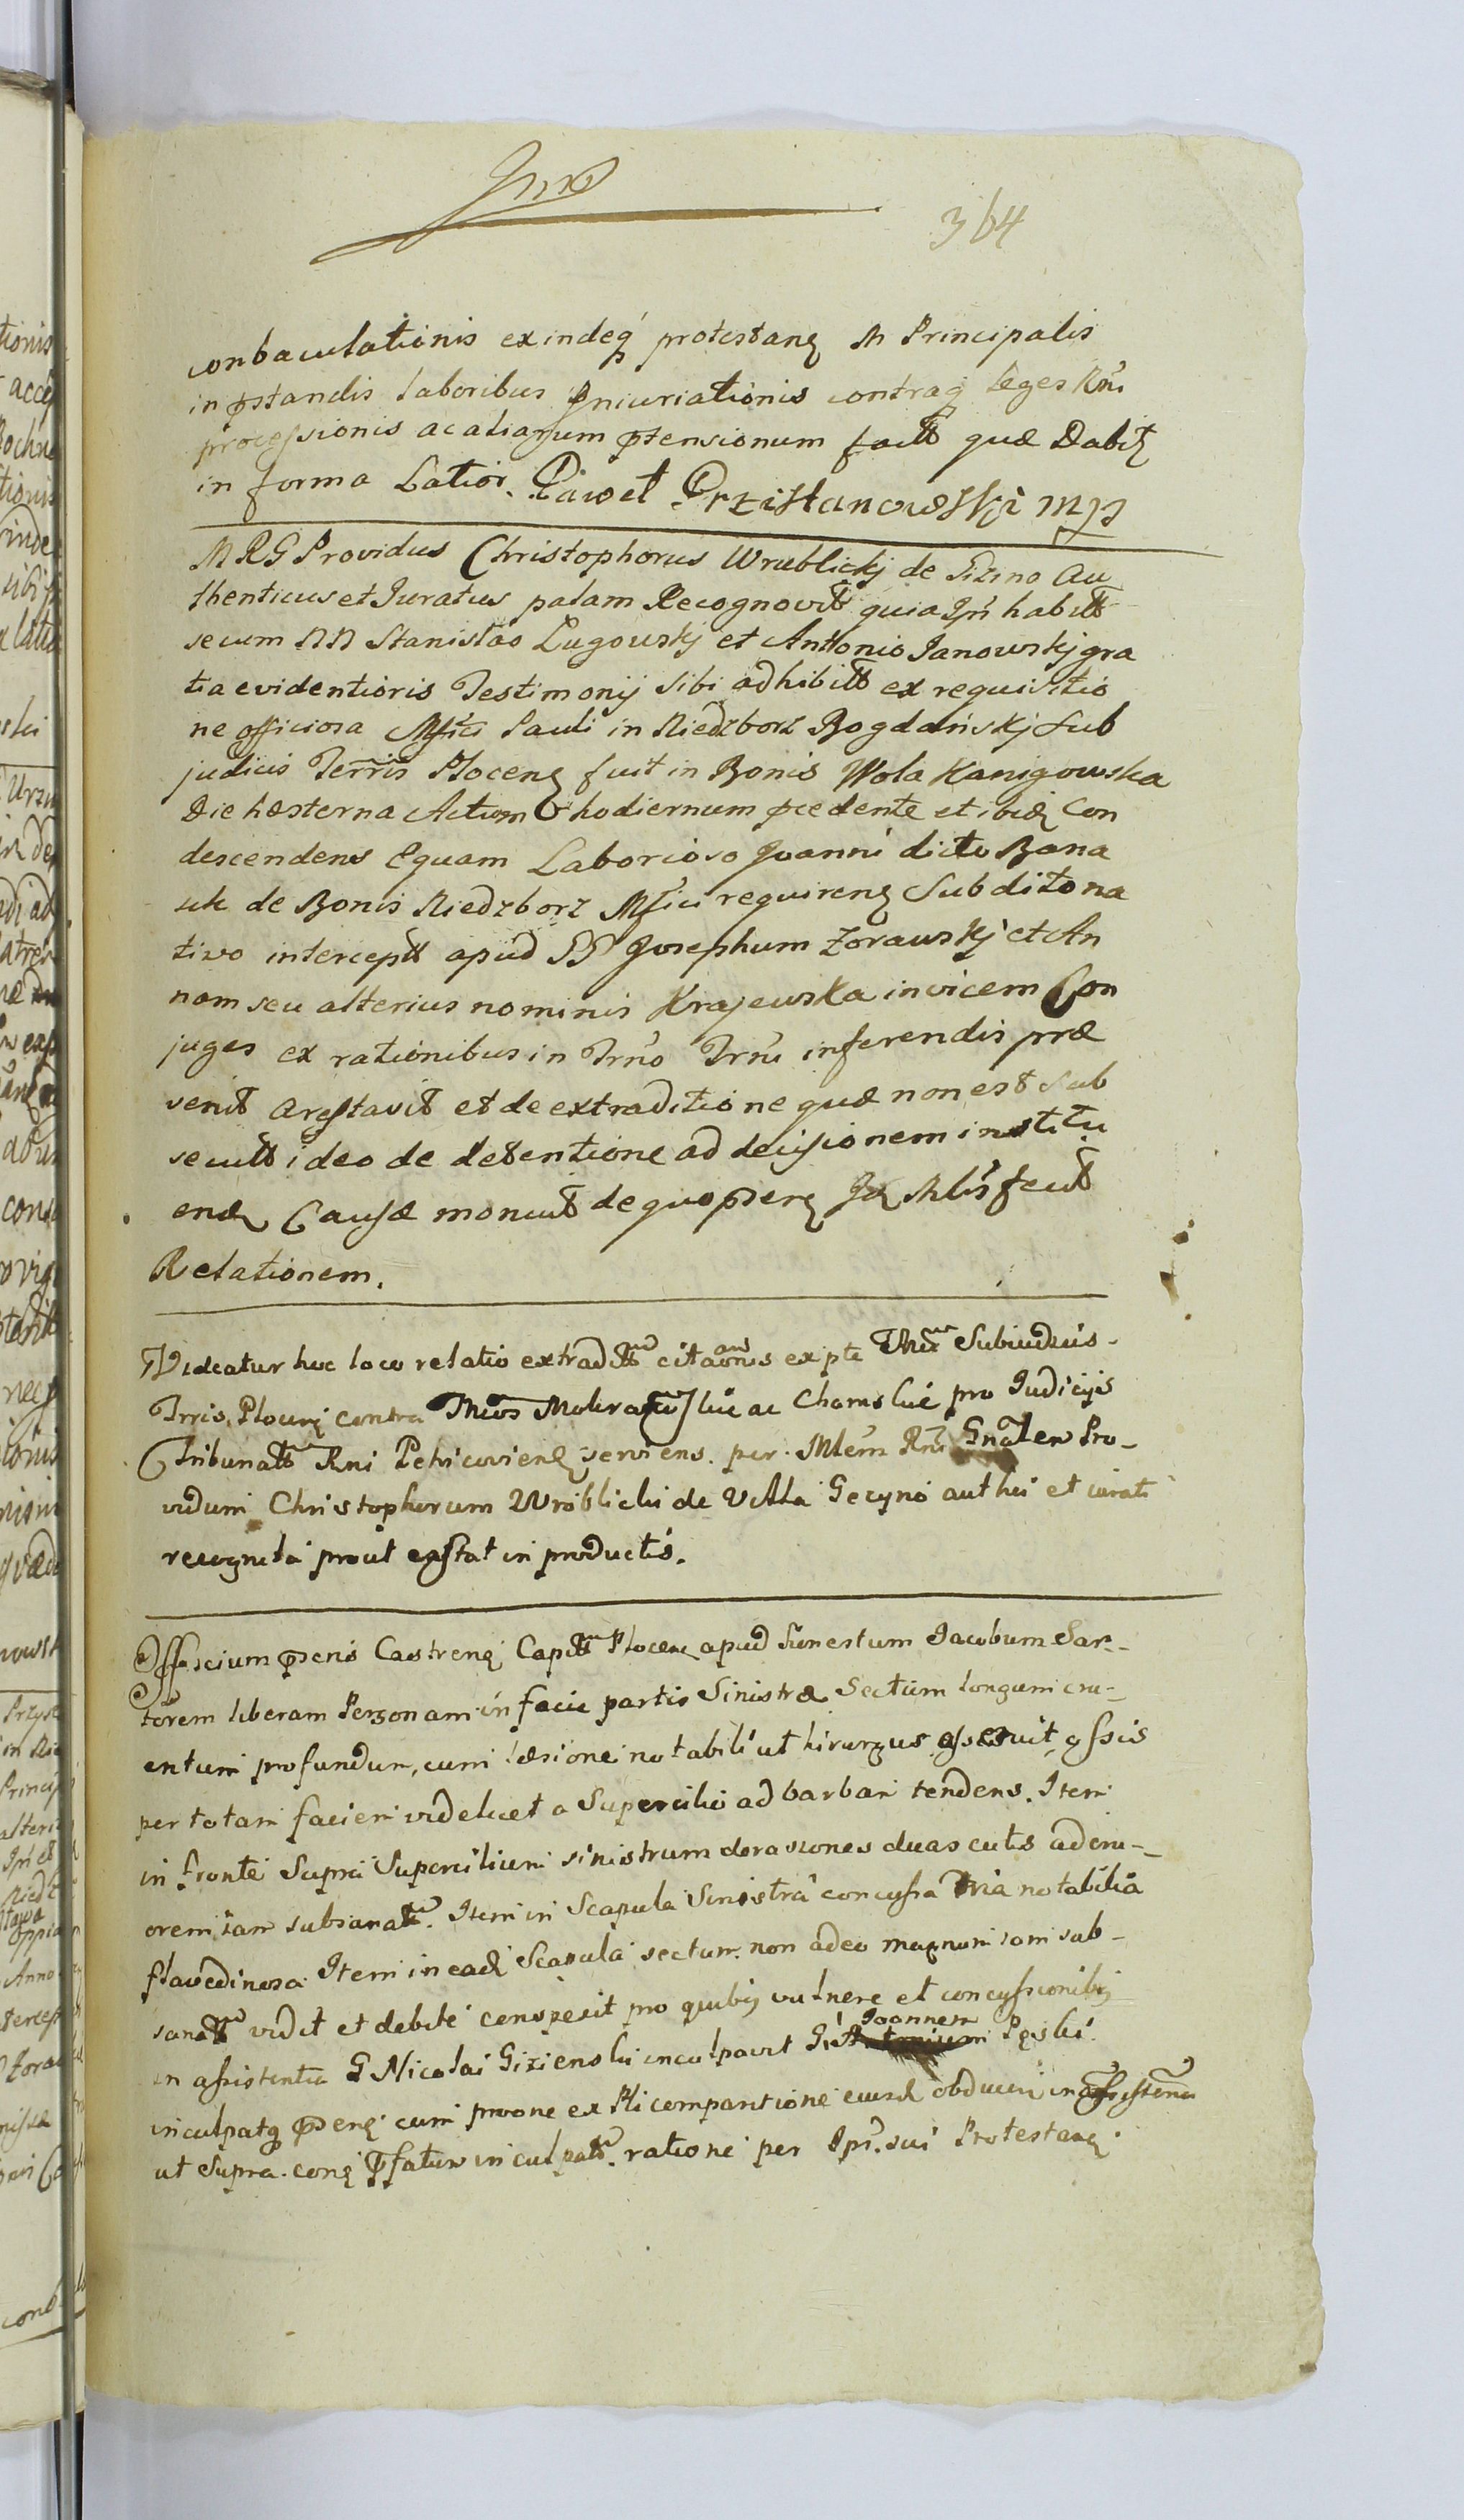 364
conbaculationis exindeq protestanq M Principalis
in pstandis laboribus Iniuriationis contraq Leges Rni
processionis ac aliarum ptensionum factt quæ Dabit
in forma Latior. Paweł Przistanowski mp
M R G Providus Christophorus Wrublickj de Gizino Au
thenticus et Iuratus palam Recognovit quia Ipn habitt
secum NN Stanislao Lugowskj et Antonio Janowskj gra
tia evidentioris Testimonij sibi adhibitt ex requisitio
ne officiosa Mfici Pauli in Niedzborz Bogdańskj Sub
judicis Terris Plocenq fuit in Bonis Wola Kanigowska
Die hæsterna Actum hodiernum pcedente et ibid Con
descendens Equam Laborioso Joanni dicto Bana
sik de Bonis Niedzborz Mfici requirenq Subdito na
tivo interceptt apud GG Josephum Zorawskj et An
nam seu alterius nominis Krajewska invicem Con
juges ex rationibus in Trno Trni inferendis præ
venit arestavit et de extraditione quæ non est sub
secutt ideo de detentione ad decisionem institu
end Causæ monuit de quo psenq Id Mlis fecit
Relationem.
Videatur hoc loco relatio extraditt citaonis ex pte Subiudicis
Trris Plocenq contra Mokra ac Chamskie pro Iudicijs
Tribunatt Rni Petricovienq serviens. per Mlem Rni Gnalem Pro-
vidum Christophorum Wróblicki de Villa Gecyno authei et iurati
recognita prout exstat in productis.
Officium psens Castrenq Capitt Plocenq apud Funestum Jacobum Sar-
torem liberam Personam in facie partis Sinistræ Sectum longum cru-
entum profundum, cum læsione notabili ut hirurgus asseruit ossis
per totam faciem videlicet a Supercilio ad barbam tendens. Item
in fronte Supra Supercilium sinistrum derasiones duas cutis ad cru-
orem iam subsanatt. Item in Scapula Sinistra concussa tria notabilia
flavedinosa Item in ead Scapula sectum non adeo magnum iam sub-
sanatt vidit et debite conspexit pro quibus vulnere et concussionibus
Joannem
in assistentia G Nicolai Gizienski inculpavit Gi
inculpatq psenq cum prone ex Pli comparitione eiusd obducen in assistentia
ut Supra conq pfatum inculpatt ratione per Ipn sui Protestanq